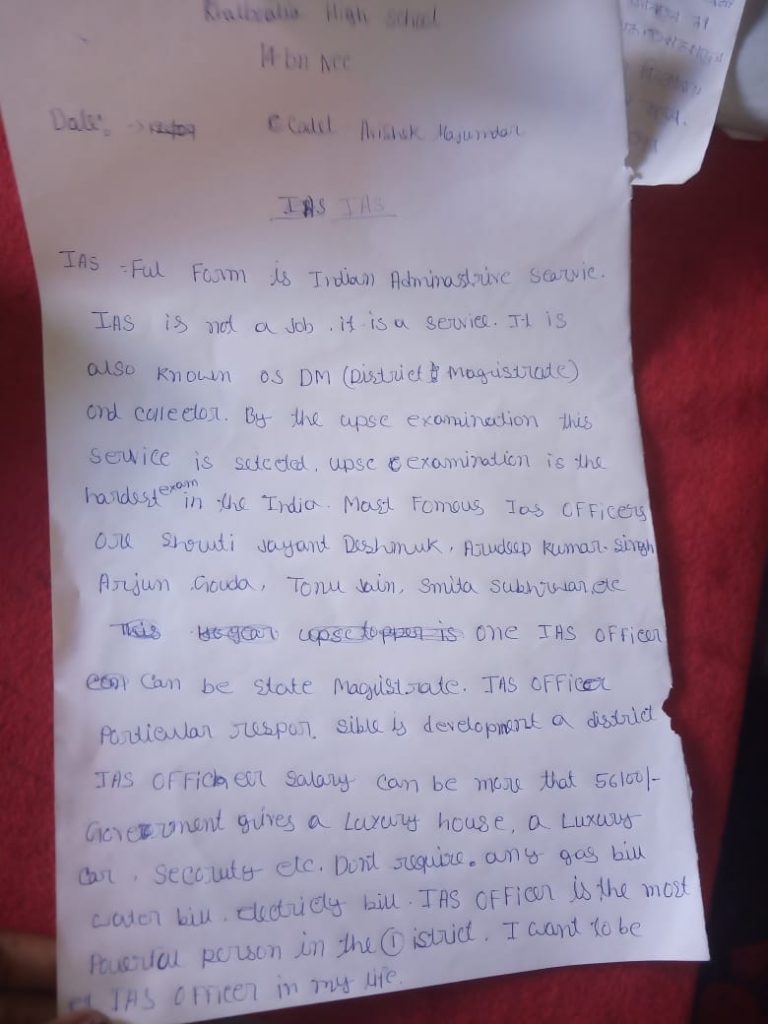 High school
14 bn NCC
Date: Cadet Avishek Majumdar
IAS IAS
IAS :Ful Form is Indian Adminastrive searvie.
IAS is not a Job . it is a service. It is
also known as DM (District Magistrate)
and collector. By the upsc examination this
service is selected. upsc examination is the
hardest exam in the India. Most Famous Ias OFFicers
are Shruti Jayant Deshmuk, Arudeep Kumar Singh
Arjun Gouda, Tonu Jain, Smita Subhrwar, etc
This upsc topper is one IAS OFFicer
can be state Magistrate. IAS OFFicer
Particular respon. sible is development a district
IAS OFFicheer salary can be more that 56100/-
Government gives a Luxury house, a Luxury
car, Securuty etc. Dont require. any gas bill
water bill. electricity bill. IAS OFFicer is the most
Powerful person in the District. I want to be
IAS OFFicer in my life.